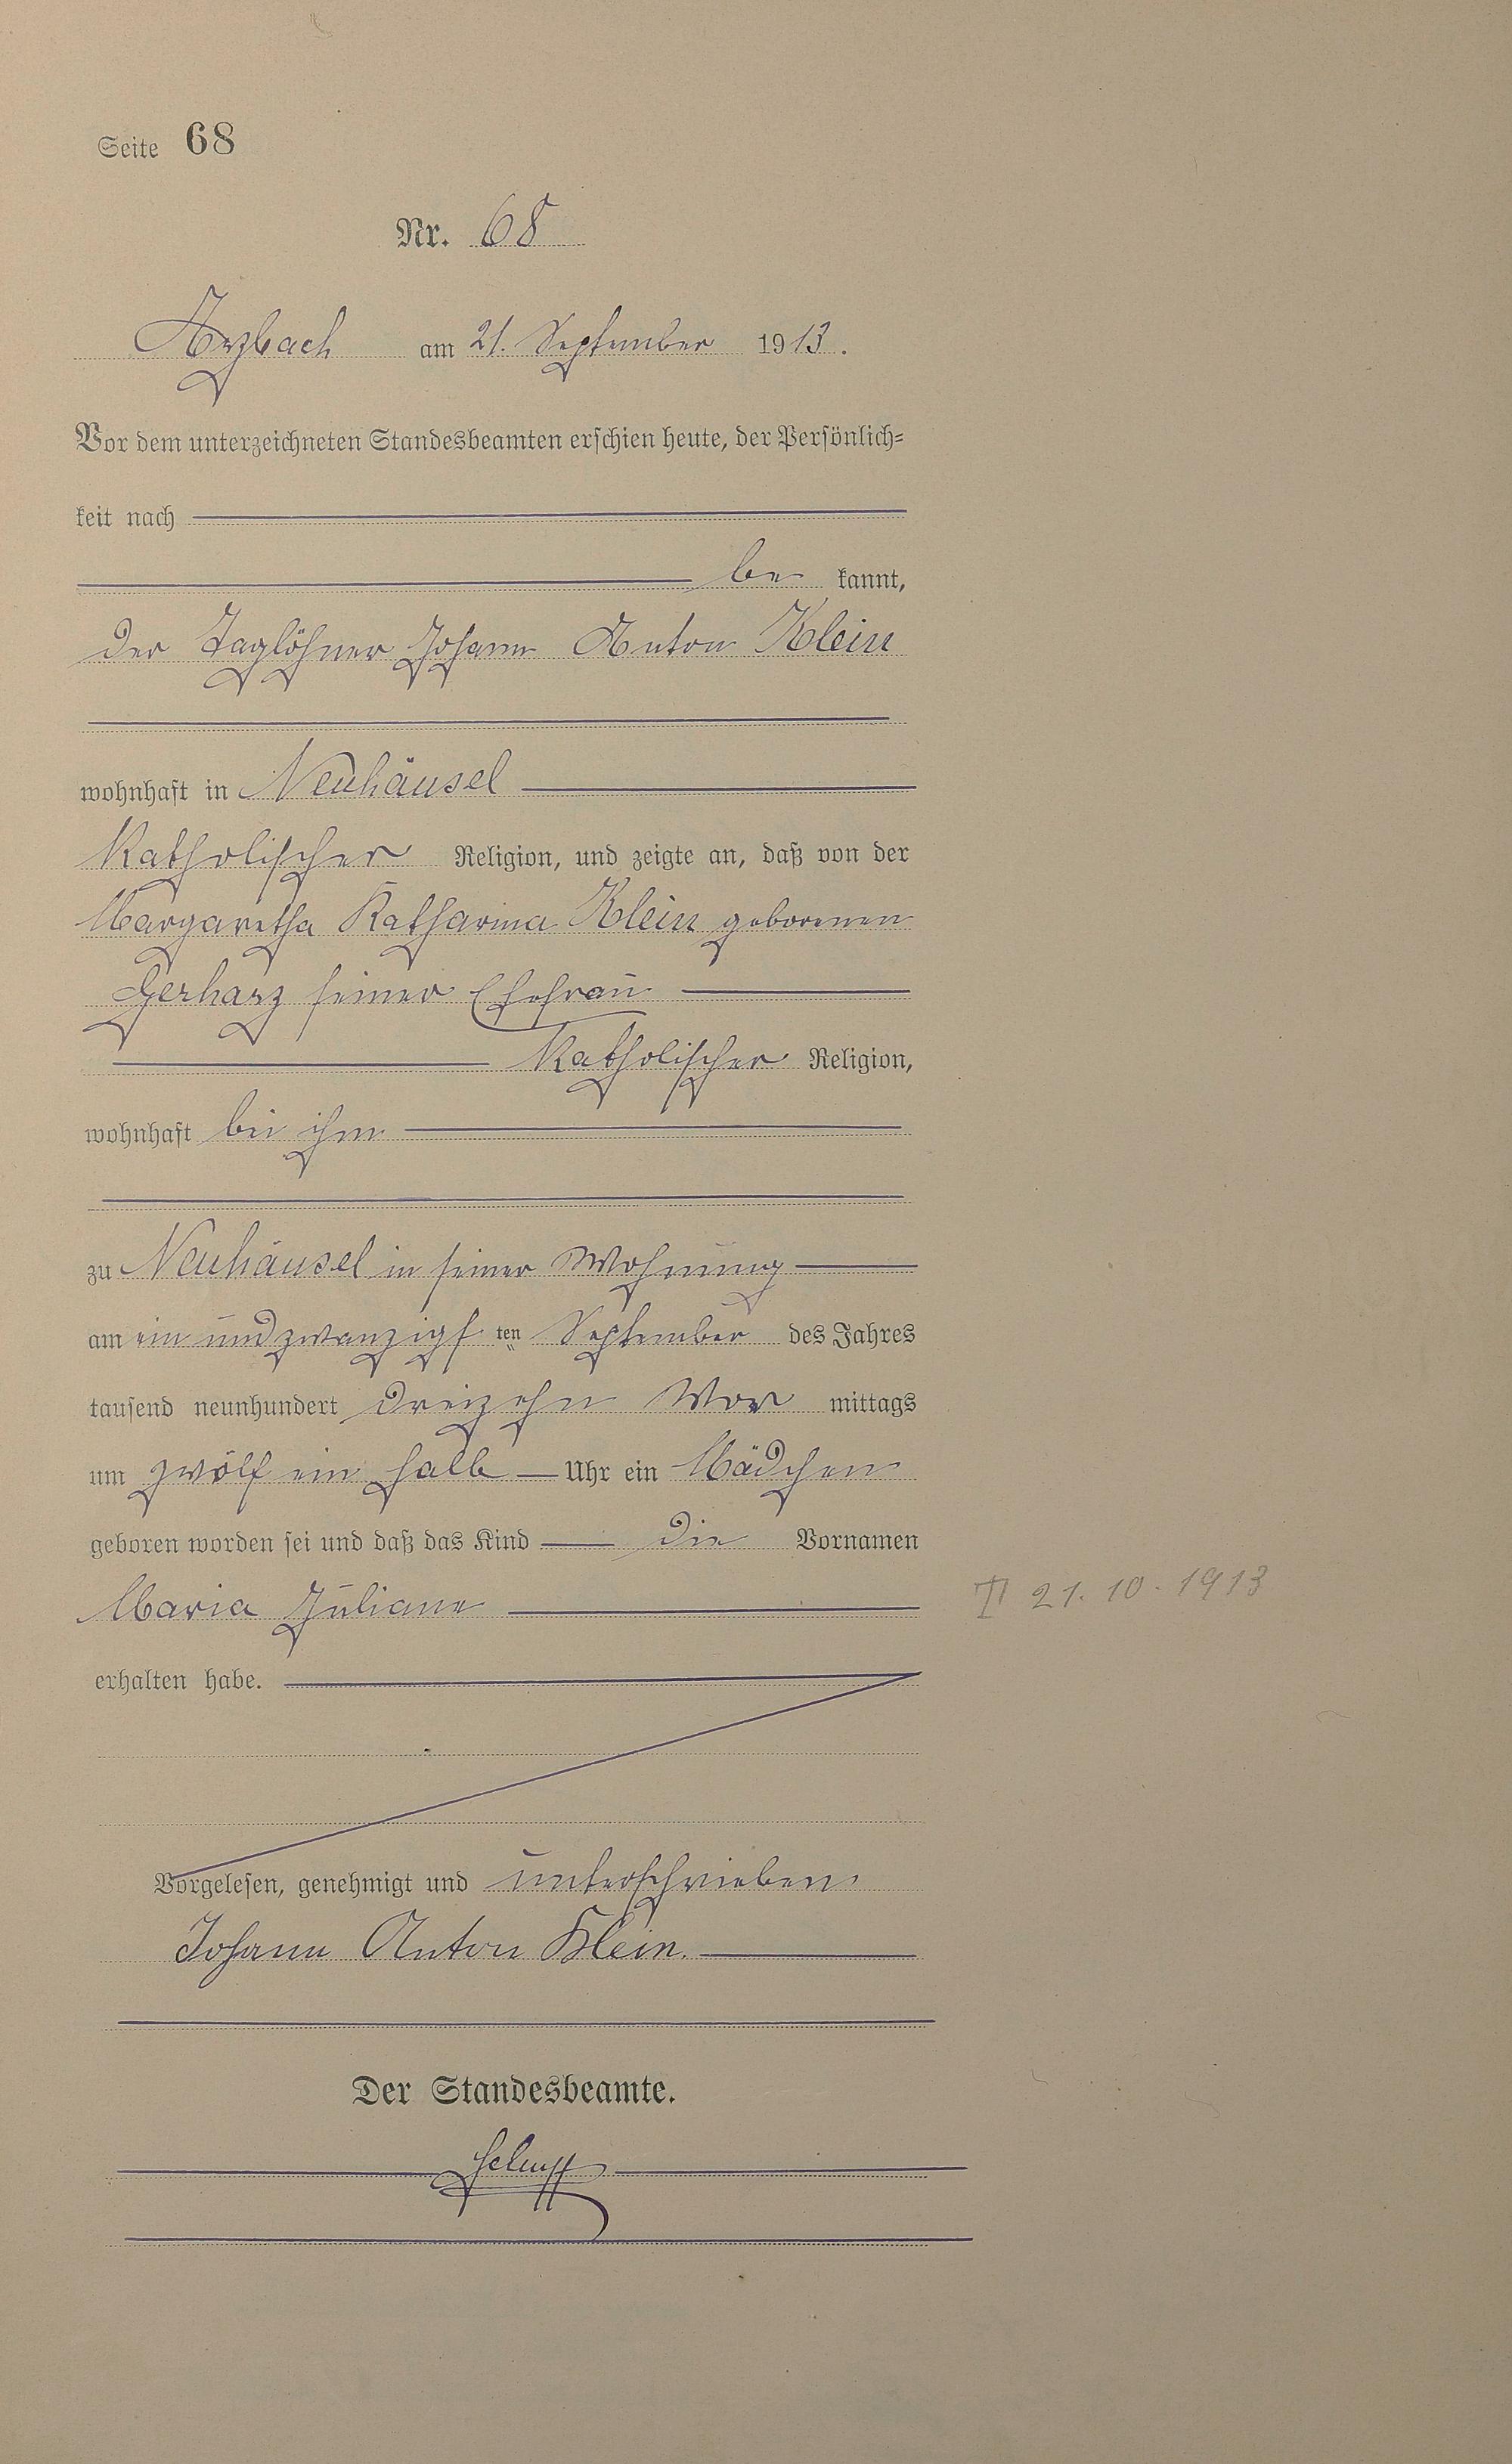 Seite 68
Nr. 68
Arzbach am 21. September 1913.
Vor dem unterzeichneten Standesbeamten erschien heute, der Persönlich-
keit nach
be kannt,
der Taglöhner Johann Anton Klein
wohnhaft in Neuhäusel
Katholischer Religion, und zeigte an, daß von der
Margaretha Katharina Klein geborenen
Gerharz seiner Ehefrau
Katholischer Religion,
wohnhaft bei ihm
zu Neuhäusel in seiner Wohnung
am ein und zwanzigs ten September des Jahres
tausend neunhundert dreizehn Vor mittags
um zwölf ein halb Uhr ein Mädchen
geboren worden sei und daß das Kind die Vornamen
Maria Juliane
21.10.1913
erhalten habe.
Vorgelesen, genehmigt und unterschrieben
Johann Anton Klein.
Der Standesbeamte.